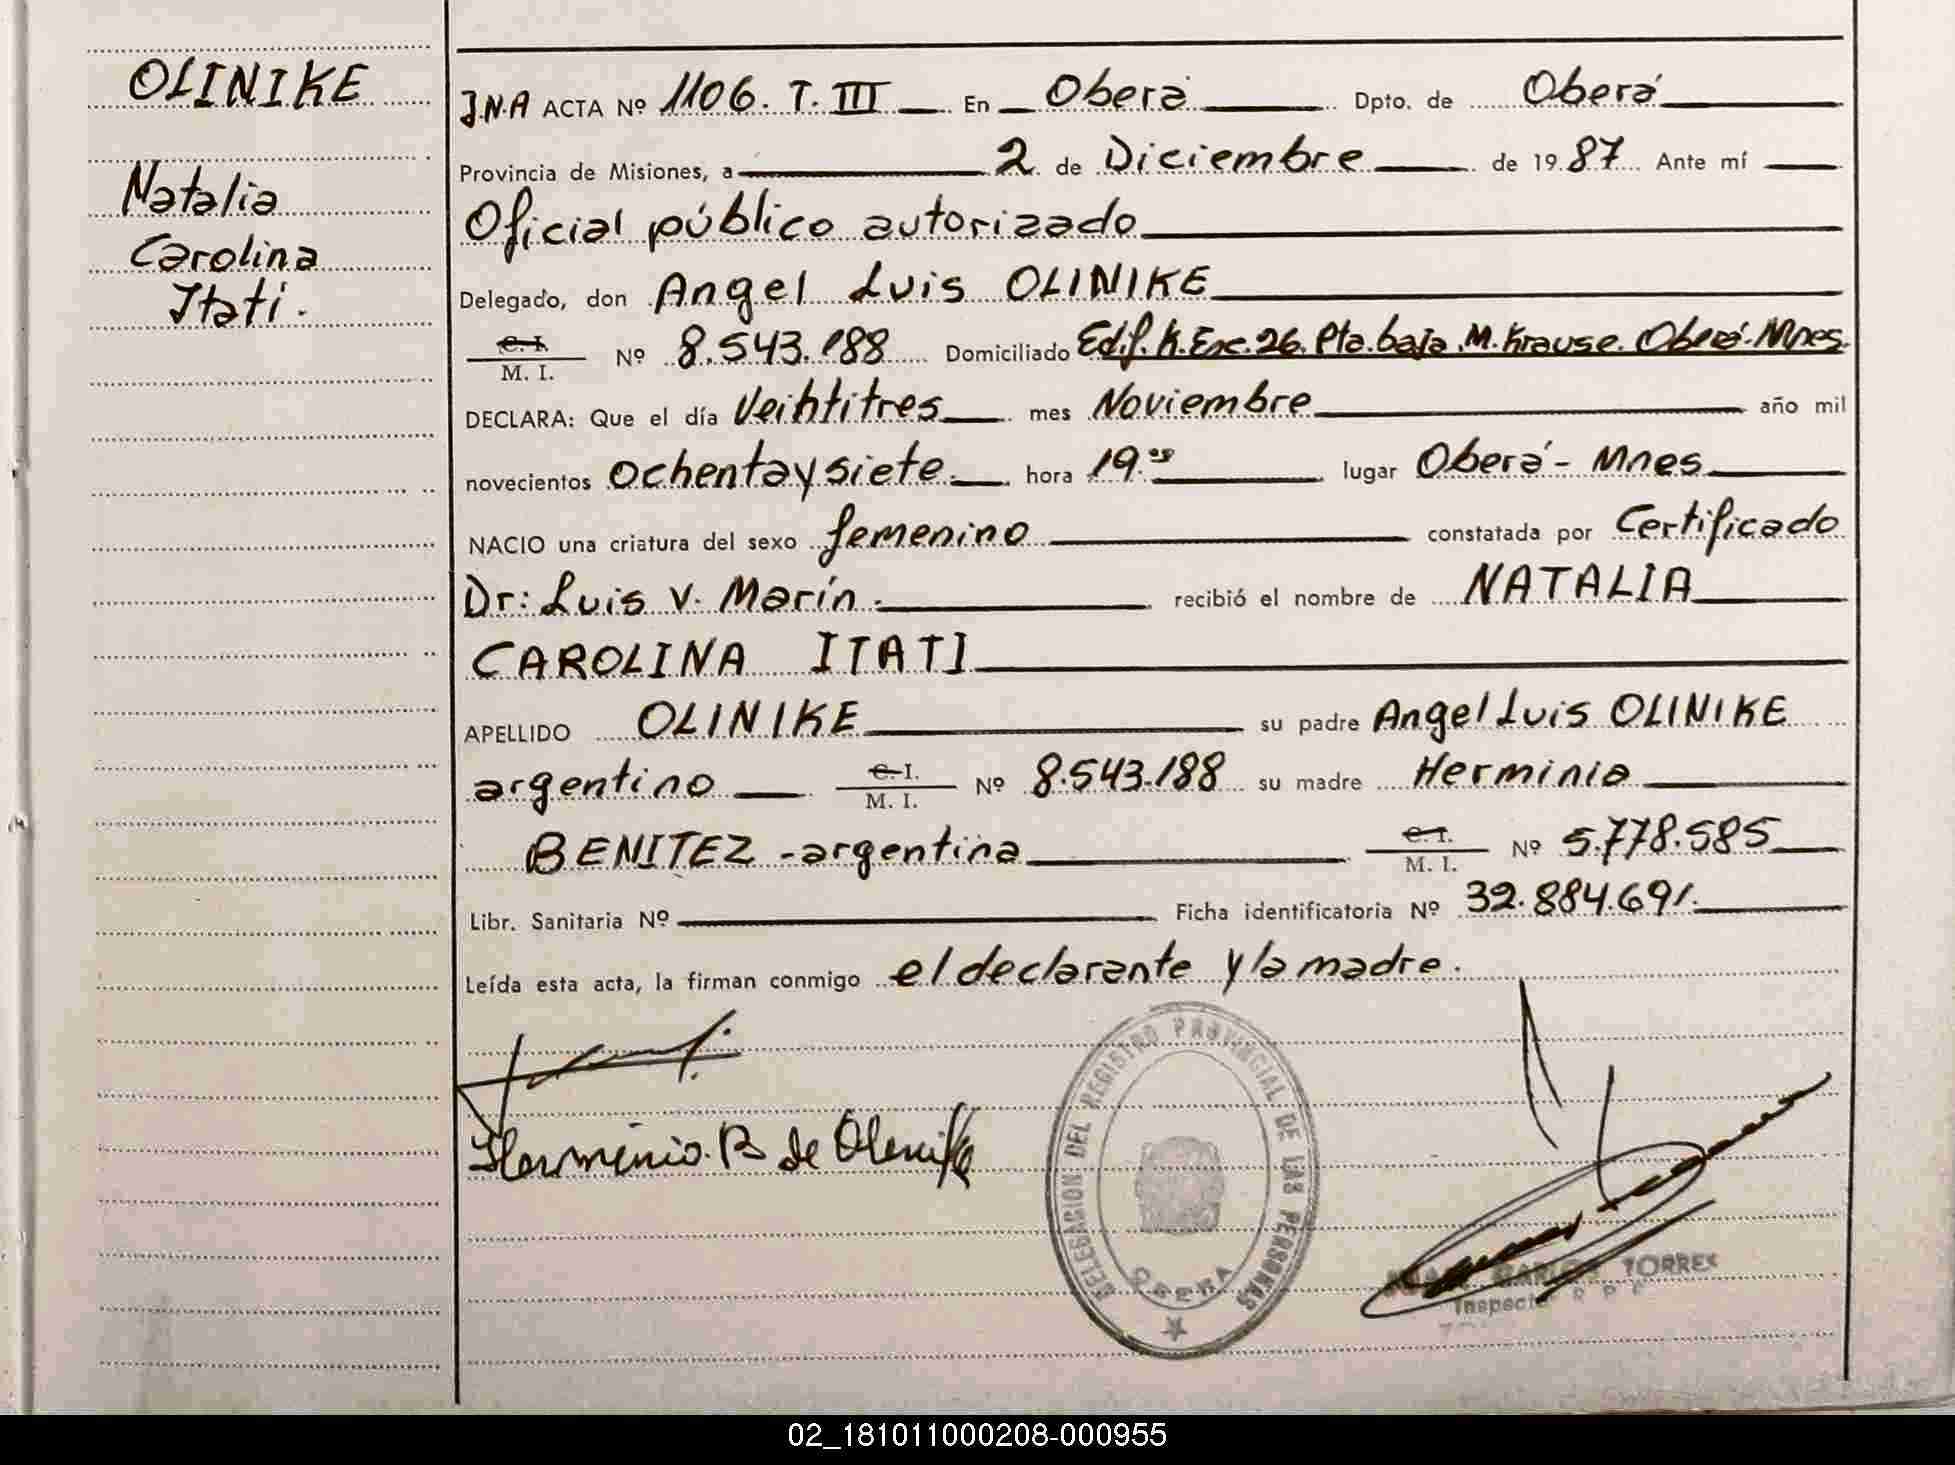 OLINIKE
Natalia
Carolina
Itatí.
J.N.A ACTA Nº 1106. T. III En Oberá Dpto. de Oberá
Provincia de Misiones, a 2 de Diciembre de 1987 Ante mí
Oficial público autorizado
Delegado, don Angel Luis OLINIKE
C. I.
M. I. Nº 8.543.188 Domiciliado Edif. K. Esc. 26. Pta. baja. M. Krause. Oberá-Mnes.
DECLARA: Que el día Veintitres mes Noviembre año mil
novecientos ochenta y siete hora 19. lugar Oberá-Mnes
NACIO una criatura del sexo femenino constatada por Certificado
Dr: Luis V. Marín. recibió el nombre de NATALIA
CAROLINA ITATI
APELLIDO OLINIKE su padre Angel Luis OLINIKE
argentino C. I.
M. I. Nº 8.543.188 su madre Herminia
BENITEZ - argentina C. I.
M. I. Nº 5.778.585
Libr. Sanitaria Nº Ficha identificatoria Nº 32.884.691.
Leída esta acta, la firman conmigo el declarante y la madre.
Herminia. B de Olenike
DELEGACION DEL REGISTRO PROVINCIAL DE LAS PERSONAS
OBERA
JUAN CARLOS TORRES
Inspector R P P
02_181011000208-000955